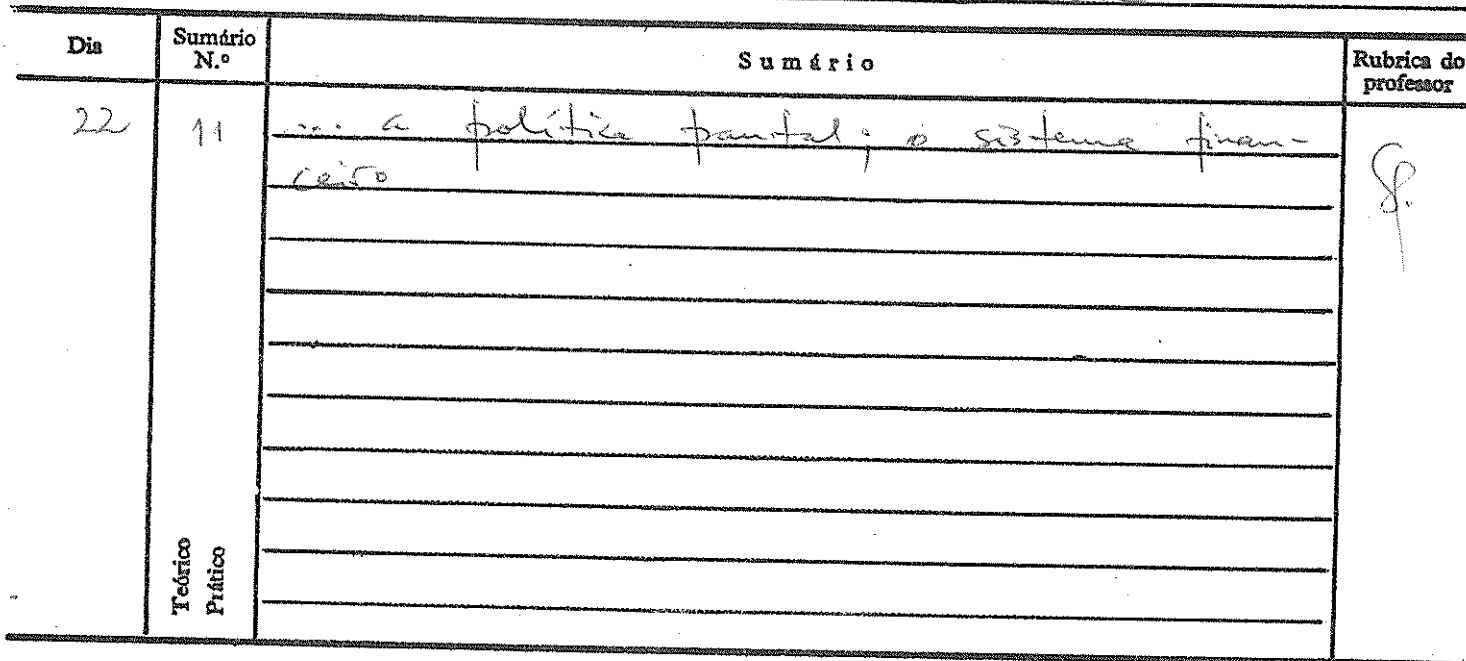 Dia Sumário N.º Sumário Rubrica do professor
22 11 ... a política pautal; o sistema finan-
ceiro
Teórico
Prático